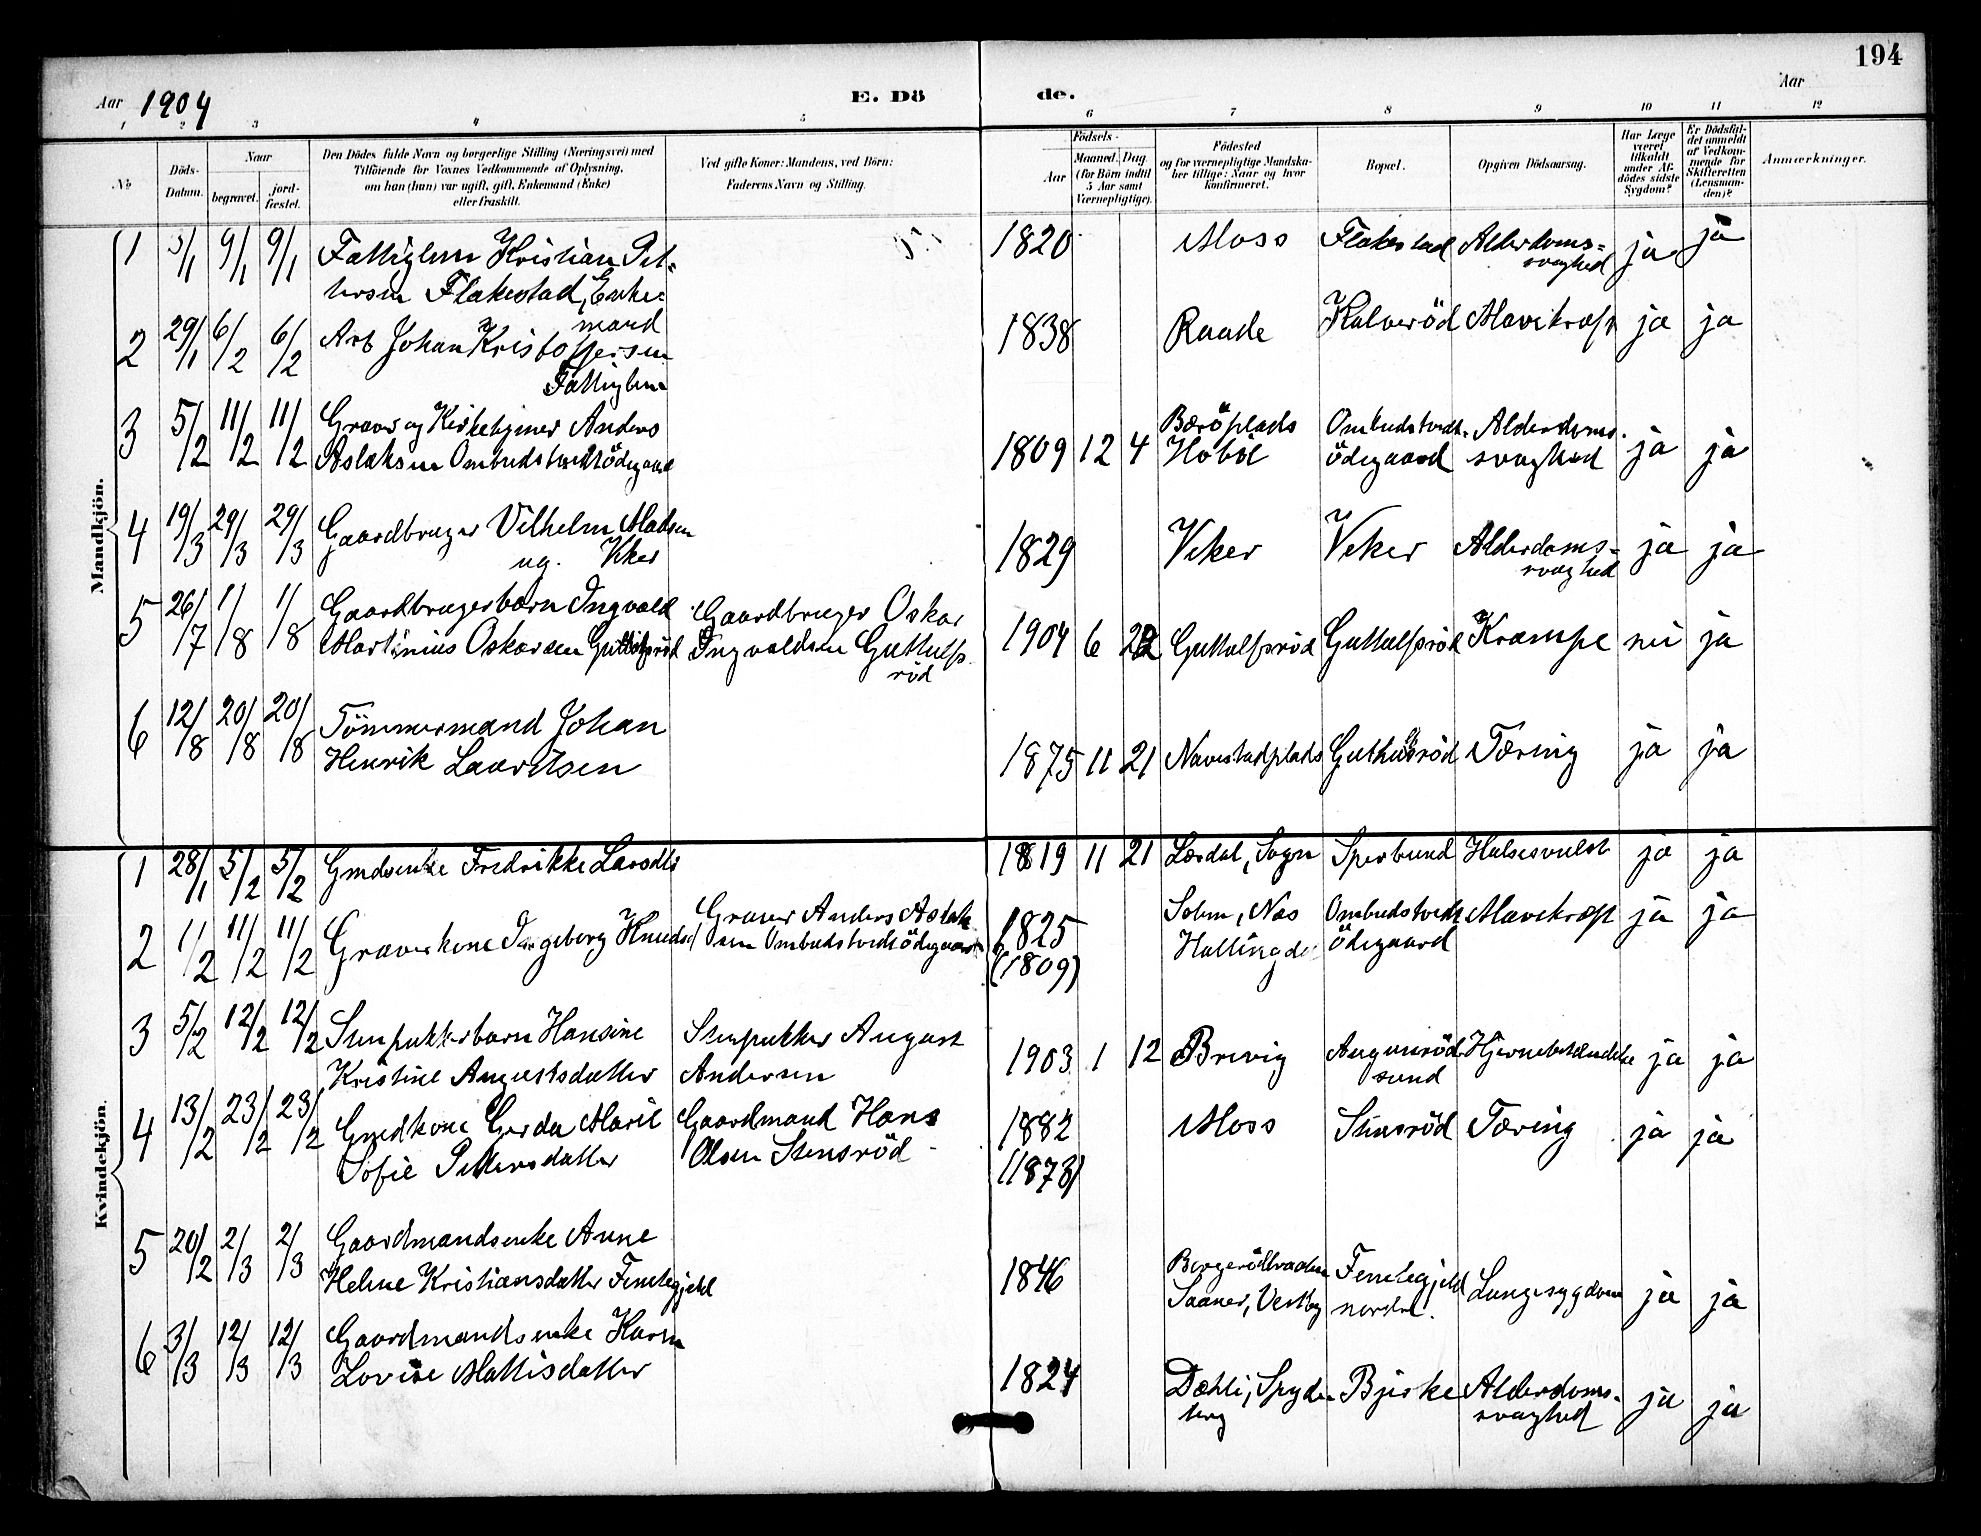 194
Aar 1904 E. Dö de. Aar
1 2 3 4 5 6 7 8 9 10 11 12
No
Döds-Datum.
Naar
begravet. jord-fæstet.
Den Dödes fulde Navn og borgerlige Stilling (Næringsvei) med
Tilföiende for Voxnes Vedkommende af Oplysning,
om han (hun) var ugift, gift, Enkemand (Enke)
eller fraskilt.
Ved gifte Koner: Mandens, ved Börn:
Faderens Navn og Stilling.
Födsels-
Aar
Maaned. Dag
(for Börn indtil
5 Aar samt
Værnepligtige).
Födested
og for værnepligtige Mandska-
ber tillige: Naar og hvor
konfirmeret.
Bopæl.
Opgiven Dödsaarsag.
Har Læge
været
tilkaldt
under Af-
dödes sidste
Sygdom?
Er Dödsfal-
det anmeldt
af Vedkom-
mende for
Skifteretten
(Lensman-
den)?
Anmærkninger.
Mandkjön.
1 5/1 9/1 9/1 Fattiglem Kristian Pet-
tersen Flakestad, Enke-
mand
1820 Moss Flakestad Alderdoms-
svaghed ja ja
2 29/1 6/2 6/2 Arb Johan Kristoffersen
Fattiglem
1838 Raade Kalveröd Mavekræft ja ja
3 5/2 11/2 11/2 Graver og Kirketjener Anders
Aslaksen Ombudstvedtödegaard
1809 12 4 Beröplads
Hoböl Ombudstvedt-
ödegaard Alderdoms-
svaghed ja ja
4 19/3 29/3 29/3 Gaardbruger Vilhelm Madsen
ug. Veker
1829 Veker Veker Alderdoms-
svaghed ja ja
5 26/7 1/8 1/8 Gaardbrugerbarn Ingvald
Martinius Oskarsen Guttulfsröd
Gaardbruger Oskar
Ingvaldsen Guttulfs
röd
1904 6 22 Guttulfsröd Guttulfsröd Krampe nei ja
6 12/8 20/8 20/8 Tömmermand Johan
Henrik Lauritsen
1875 11 21 Navestadplads Guthusröd Tæring ja ja
Kvindekjön.
1 28/1 5/2 5/2 Gmdsenke Fredrikke Larsdtr
1819 11 21 Lærdal, Sogn Sperbund Halsesvulst ja ja
2 1/2 11/2 11/2 Graverkone Ingeborg Knudsd
Graver Anders Aslak
sen Ombudstvedtödegaard
1825
(1809)
Solem, Nes
Hallingdal Ombudstvedt
ödegaard Mavekræft ja ja
3 5/2 12/2 12/2 Stenpukkerbarn Hansine
Kristine Augustsdatter
Stenpukker August
Andersen
1903 1 12 Brevig Augunröd
sund Hjernebetændelse ja ja
4 13/2 23/2 23/2 Gmdkone Gerda Marie
Sofie Pettersdatter
Gaardmand Hans
Olsen Stensröd
1882
(1873)
Moss Stensröd Tæring ja ja
5 20/2 2/3 2/3 Gaardmandsenke Anne
Helene Kristiansdatter Femtegjeld
1846
Saaner, Vestby Femtegjeld
nordre. Lungesygdom ja ja
6 3/3 12/3 12/3 Gaardmandsenke Karen
Lovise Mattisdatter
1824 Dæhli, Spyde-
berg Bjerke Alderdoms-
svaghed ja ja